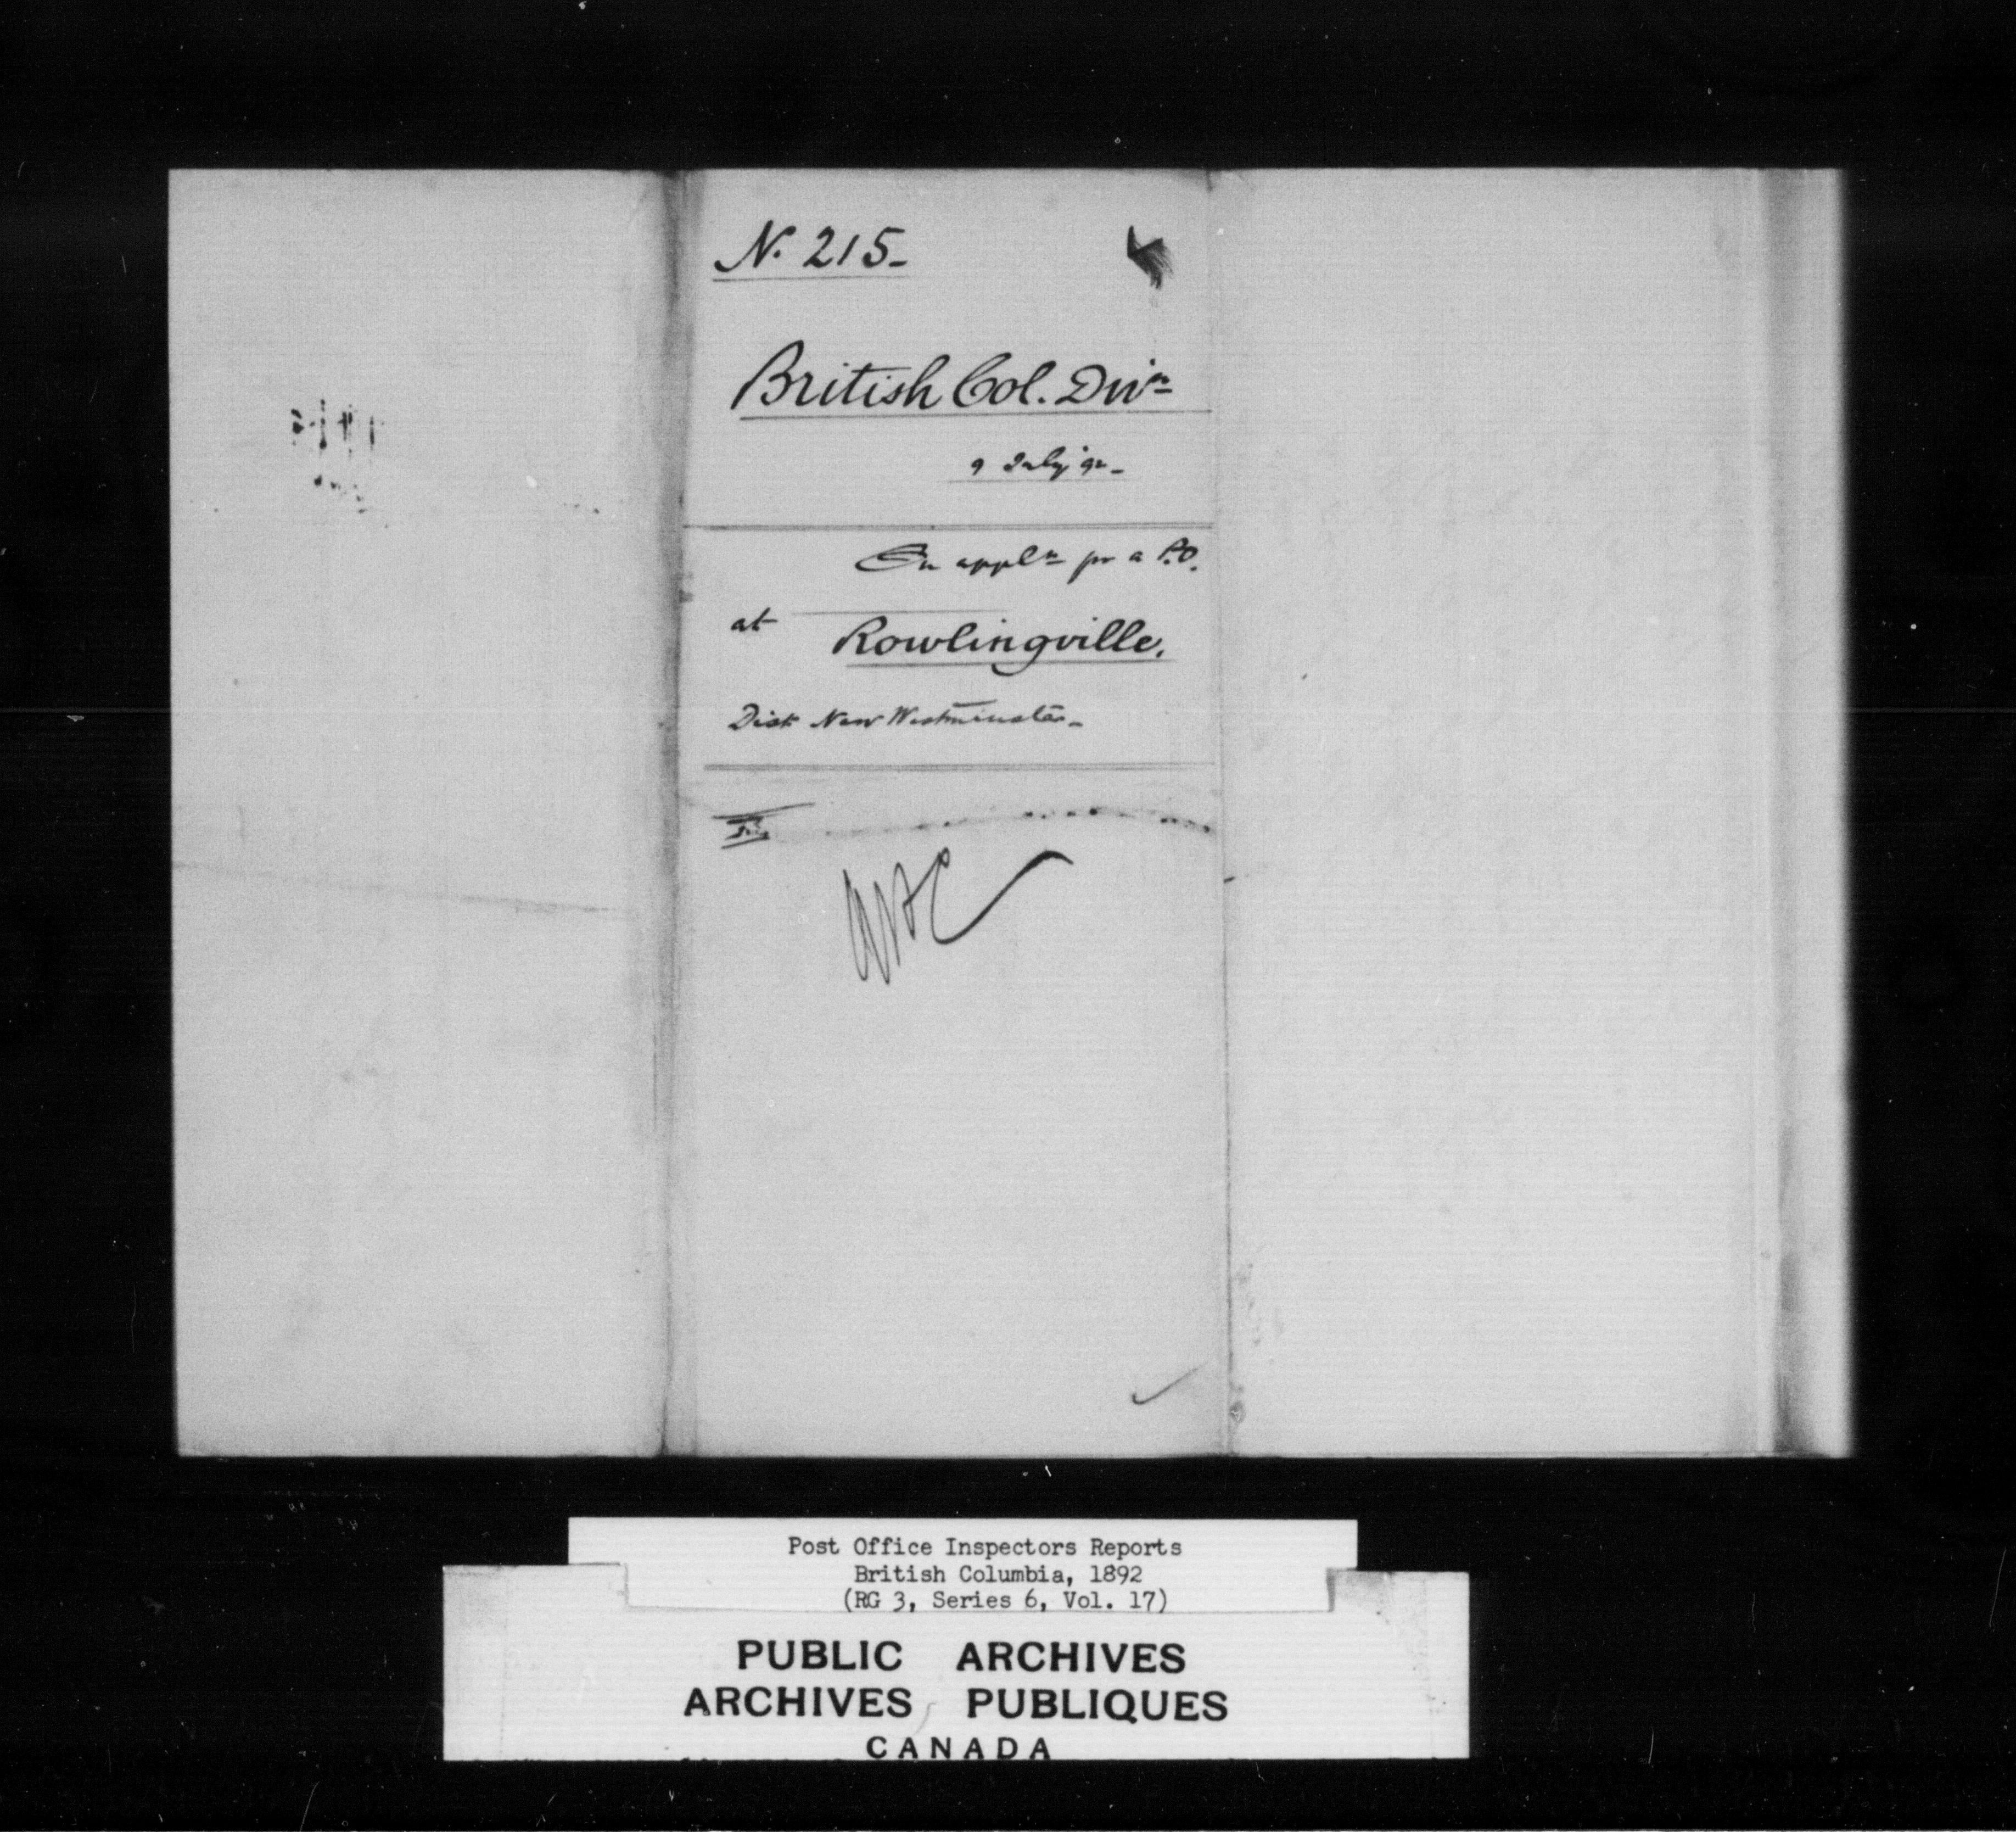 N. 215-
British Col. Divn
9 July '92-
On appln for a P.O.
at Rowlingville.
Dist New Westminster-
Post Office Inspectors Reports
British Columbia, 1892
(RG 3, Series 6, Vol. 17)
PUBLIC ARCHIVES
ARCHIVES PUBLIQUES
CANADA